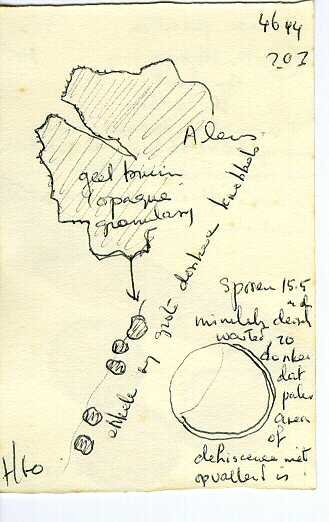 4644
A lens
geel bruin
opaque
granulary
enkele zy grote donkere knobbels
Sporen 15.5
minutely dense
warted, zo
donker
dat
pale
area
of
dehiscence niet
opvallend is
H60